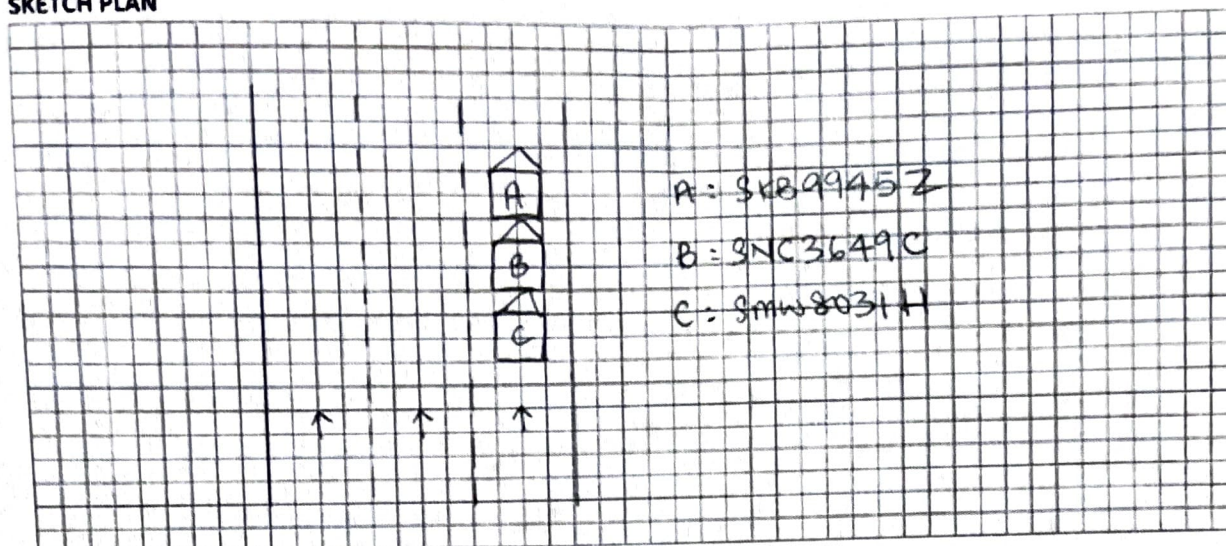 SKETCH PLAN
A
B
C
A: SKB9945Z
B: SNC3649C
C: SMW8031H